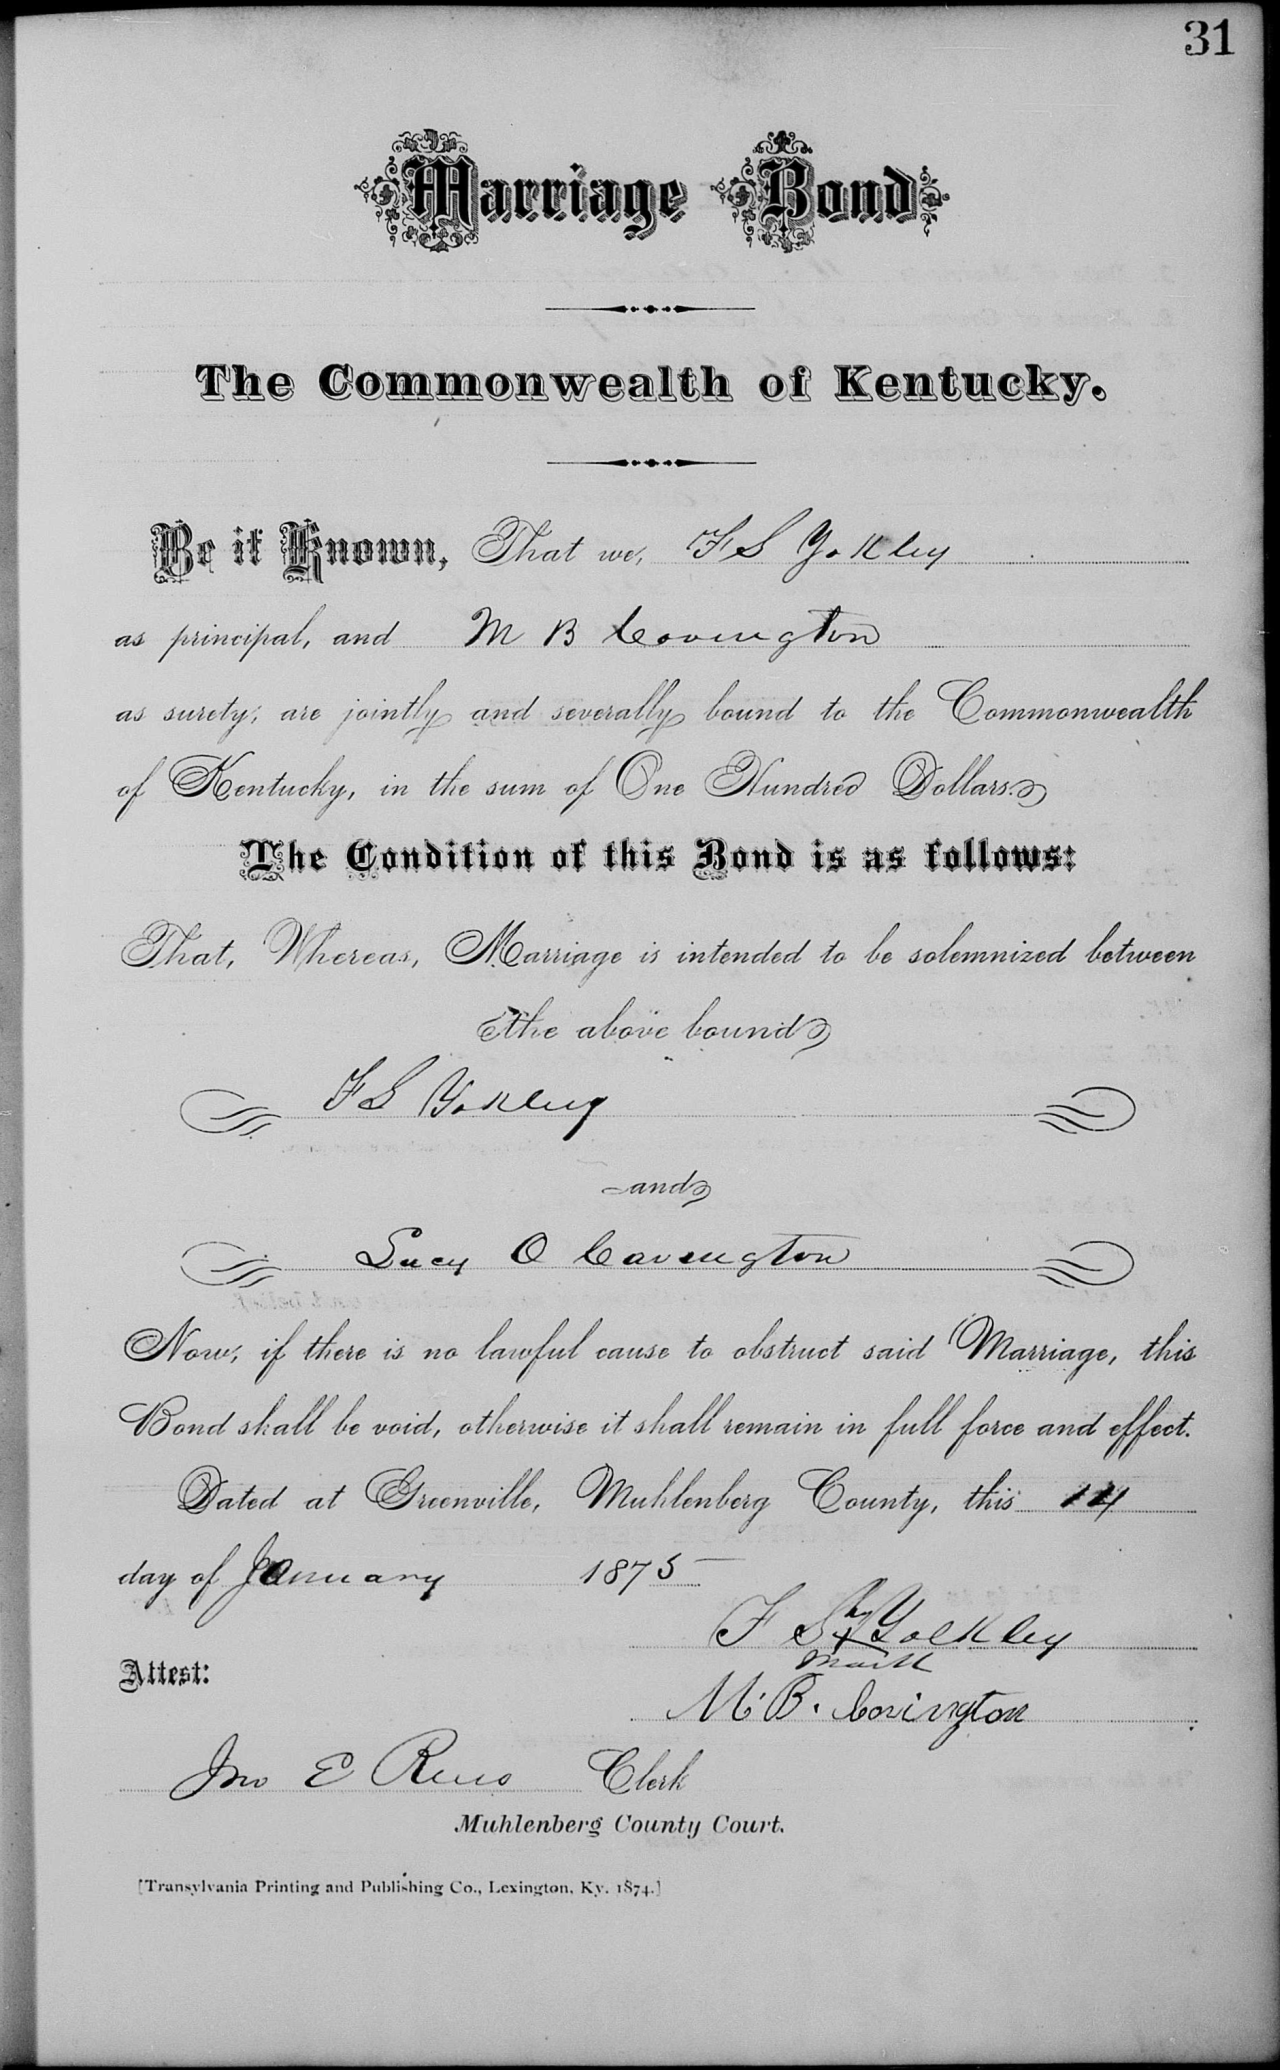 31
Marriage Bond
The Commonwealth of Kentucky.
Be it Known, That we, F S Yokley
as principal, and M B Covington
as surety, are jointly and severally bound to the Commonwealth
of Kentucky, in the sum of One Hundred Dollars.
The Condition of this Bond is as follows:
That, Whereas, Marriage is intended to be solemnized between
the above bound
F S Yokley
and
Lucy O Covington
Now, if there is no lawful cause to obstruct said Marriage, this
Bond shall be void, otherwise it shall remain in full force and effect.
Dated at Greenville, Muhlenberg County, this 14
day of January 1875
F S his x Yolkley
mark
Attest:
M. B. Covington
Jno E Reno Clerk
Muhlenberg County Court.
[Transylvania Printing and Publishing Co., Lexington, Ky. 1874.]